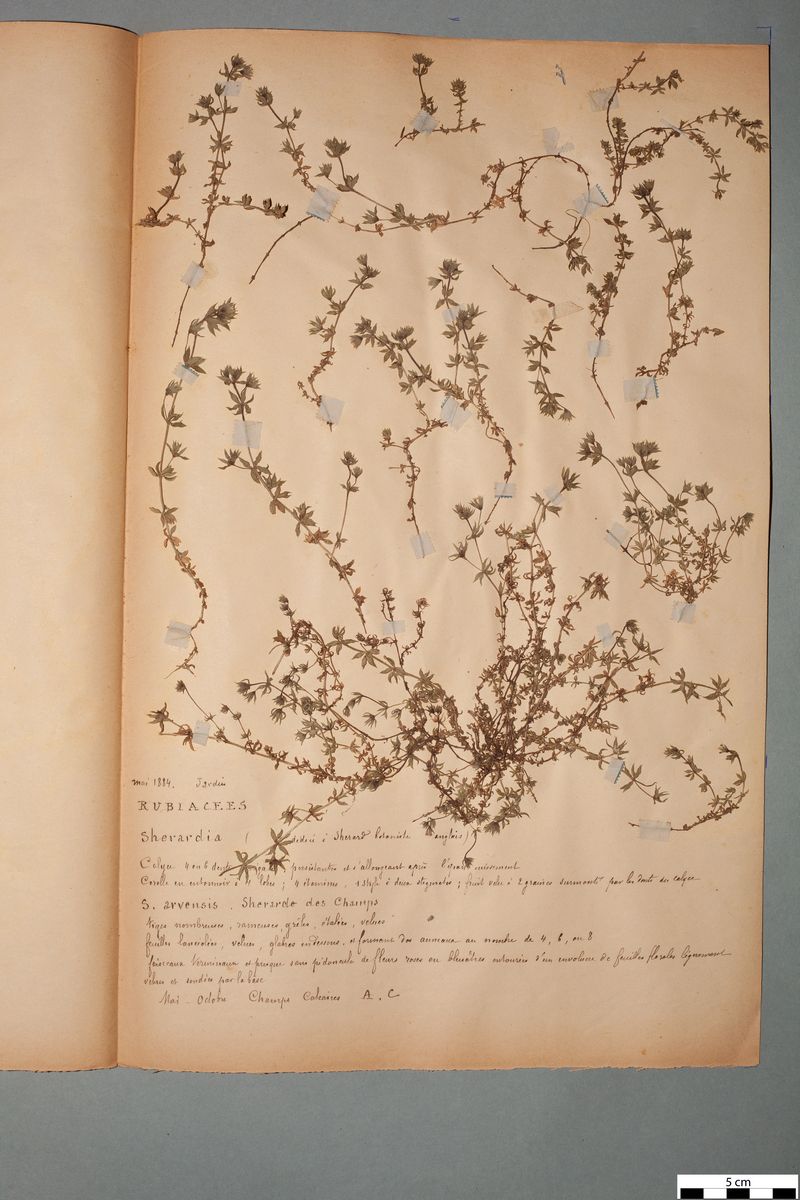 mai 1884. Jardin
RUBIACEES
Sherardia ( dédié à Sherard botaniste anglais)
Calyce 4 ou 6 dents persistantes et s'allongeant après
Corolle en entonnoir à 4 lobes ; 4 étamines, 1 style à deux stigmates ; fruit velu à 2 graines surmonté par les dents du calyce
S. arvensis. Sherarde des Champs
Tiges nombreuses, rameuses, grêles, étalées, velues
feuilles lancéolées, velues, glabres en dessous, et formant des anneaux au nombre de 4, 6, ou 8
faisceaux terminaux et presque sans pédoncule de fleurs roses ou bleuâtres entourées d'un involucre de feuilles florales
velues et soudées par la base
Mai - Octobre Champs Calcaires A. C
5 cm